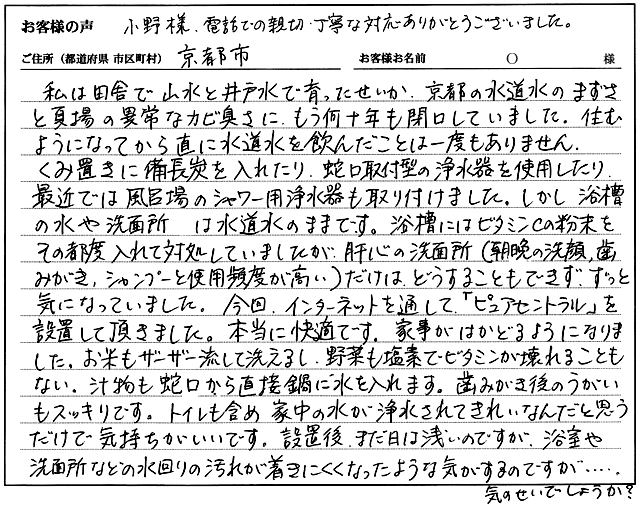 お客様の声 小野様、電話での親切・丁寧な対応ありがとうございました。
ご住所（都道府県 市区町村） 京都市 お客様お名前 〇 様
私は田舎で山水と井戸水で育ったせいか、京都の水道水のまずさ
と夏場の異常なカビ臭さに、もう何十年も閉口していました。住む
ようになってから直に水道水を飲んだことは一度もありません。
くみ置きに備長炭を入れたり、蛇口取付型の浄水器を使用したり、
最近では風呂場のシャワー用浄水器も取り付けました。しかし浴槽
の水や洗面所 は水道水のままです。浴槽にはビタミンCの粉末を
その都度入れて対処していましたが、肝心の洗面所（朝晩の洗顔、歯
みがき、シャンプーと使用頻度が高い）だけは、どうすることもできず、ずっと
気になっていました。今回、インターネットを通して、「ピュアセントラル」を
設置して頂きました。本当に快適です。家事がはかどるようになりま
した。お米もザーザー流して洗えるし、野菜も塩素でビタミンが壊れることも
ない。汁物も蛇口から直接鍋に水を入れます。歯みがき後のうがい
もスッキリです。トイレも含め家中の水が浄水されてきれいなんだと思う
だけで気持ちがいいです。設置後、まだ日は浅いのですが、浴室や
洗面所などの水回りの汚れが着きにくくなったような気がするのですが‥‥‥.
気のせいでしょうか？